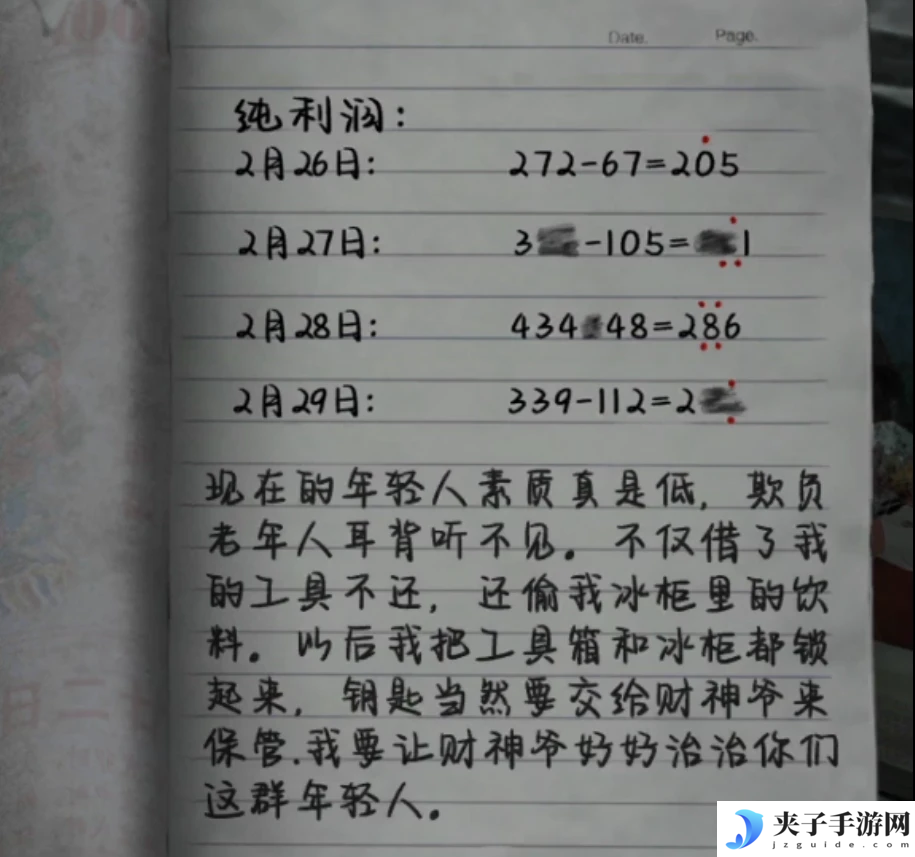 Date.
Page.
纯利润:
2月26日: 272-67=205
2月27日: 3 -105= 1
2月28日: 434 48=286
2月29日: 339-112=2
现在的年轻人素质真是低, 欺负
老年人耳背听不见。不仅借了我
的工具不还, 还偷我冰柜里的饮
料。以后我把工具箱和冰柜都锁
起来, 钥匙当然要交给财神爷来
保管.我要让财神爷好好治治你们
这群年轻人。
夹子手游网
jzguide.com